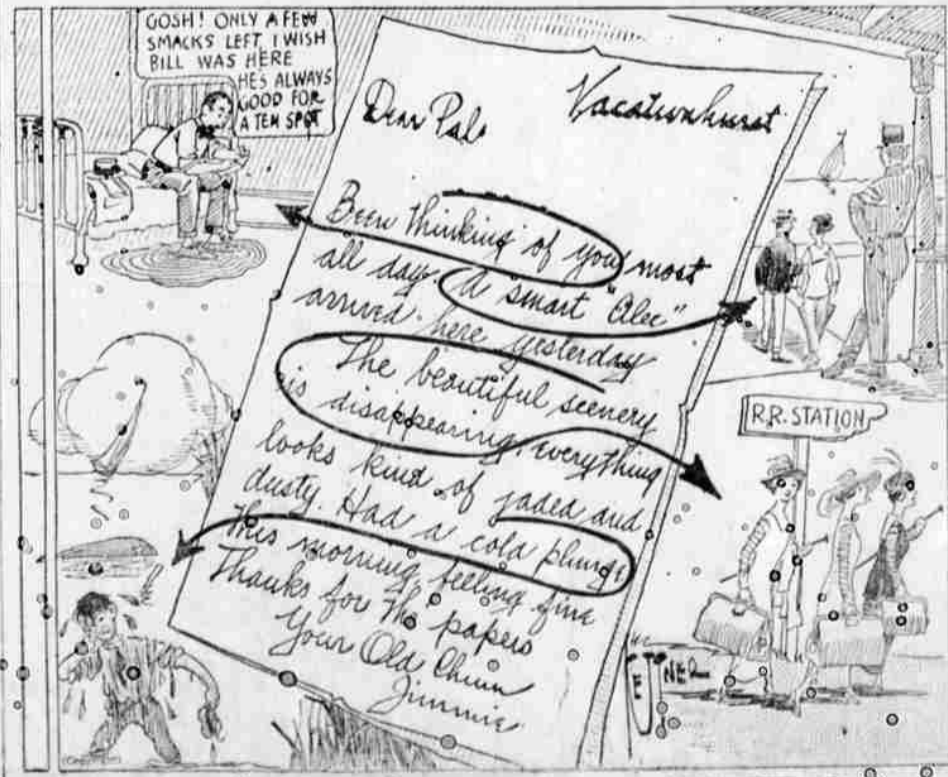 GOSH! ONLY A FEW
SMACKS LEFT I WISH
BILL WAS HERE
HES ALWAYS
GOOD FOR
A TEN SPOT
Vacationhurst
Dear Pal.
Been thinking of you most
all day. A smart "Alec"
arrived here yesterday
The beautiful scenery
is disappearing, everything
looks kind of jaded and
dusty. Had a cold plunge
this morning, feeling fine
Thanks for the papers
Your Old Chum
Jimmie
R.R. STATION